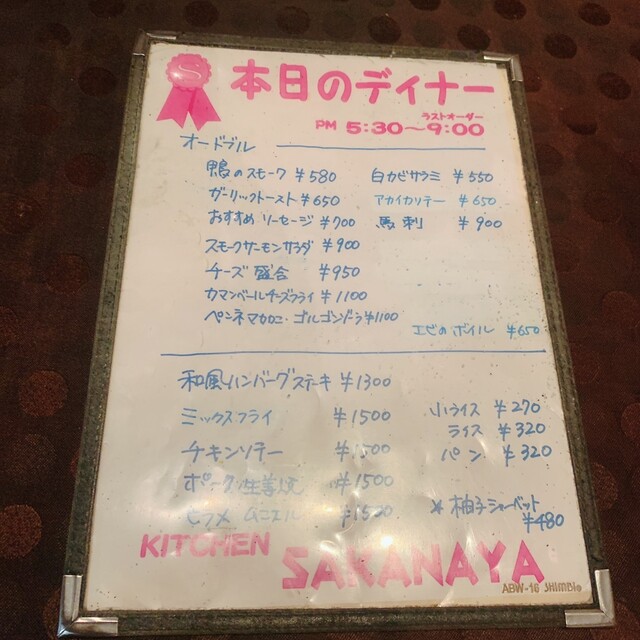 S 本日のディナー
ラストオーダー
PM 5:30～9:00
オードブル
鴨のスモーク ¥580
白カビサラミ ¥550
ガーリックトースト ¥650
アカイカソテー ¥650
おすすめ ソーセージ ¥700
馬刺 ¥900
スモークサーモンサラダ ¥900
チーズ盛合 ¥950
カマンベールチーズフライ ¥1100
ペンネマカロニ・ゴルゴンゾーラ ¥1100
エビのボイル ¥650
和風ハンバーグステーキ ¥1300
ミックスフライ ¥1500
小ライス ¥270
ライス ¥320
チキンソテー ¥1500
パン ¥320
ポーク生姜焼 ¥1500
ヒラメ ムニエル
* 柚子シャーベット
¥480
KITCHEN SAKANAYA
ABW-16 SHIMBI